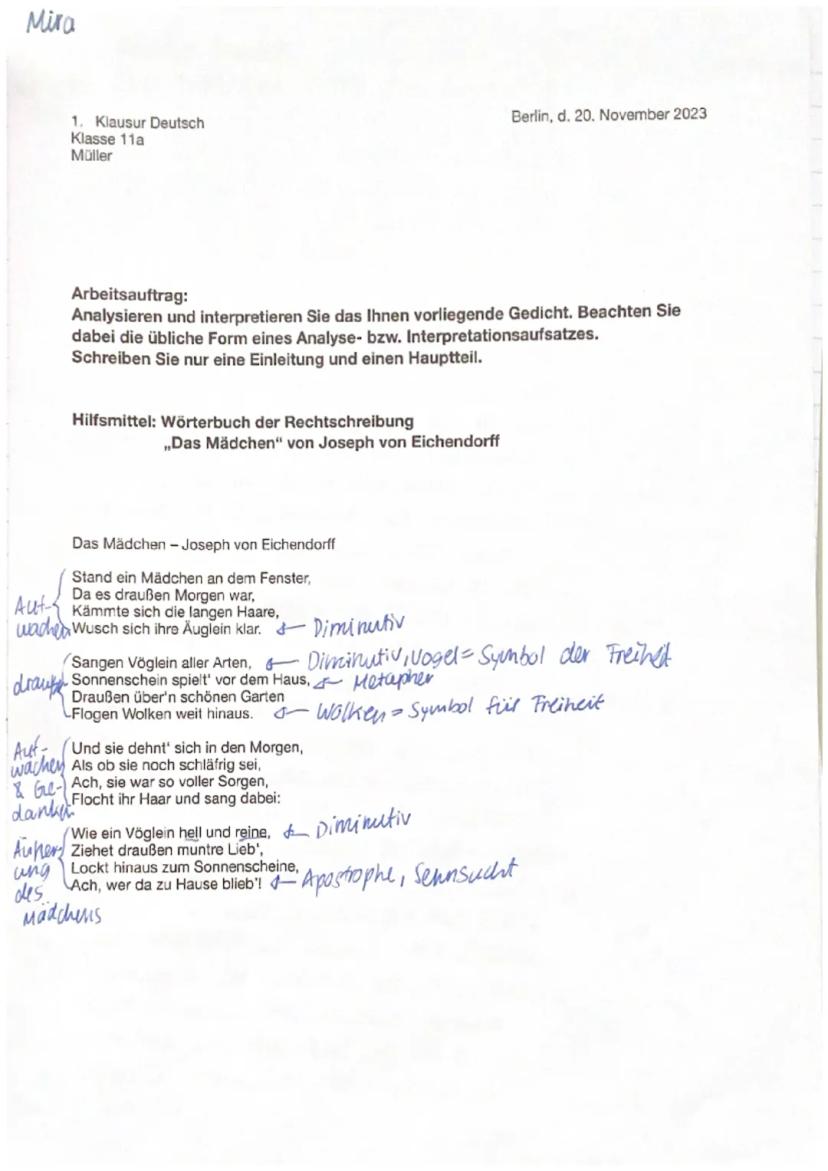 Mira
1. Klausur Deutsch
Klasse 11a
Müller
Berlin, d. 20. November 2023
Arbeitsauftrag:
Analysieren und interpretieren Sie das Ihnen vorliegende Gedicht. Beachten Sie
dabei die übliche Form eines Analyse- bzw. Interpretationsaufsatzes.
Schreiben Sie nur eine Einleitung und einen Hauptteil.
Hilfsmittel: Wörterbuch der Rechtschreibung
„Das Mädchen“ von Joseph von Eichendorff
Das Mädchen – Joseph von Eichendorff
Stand ein Mädchen an dem Fenster,
Da es draußen Morgen war,
Kämmte sich die langen Haare,
Wusch sich ihre Äuglein klar. Diminutiv
Auf-
wachen
Sangen Vöglein aller Arten, Diminutiv, Vogel = Symbol der Freiheit
Sonnenschein spielt' vor dem Haus, Metapher
Draußen über'n schönen Garten
Flogen Wolken weit hinaus. Wolken = Symbol für Freiheit
draußen
Und sie dehnt' sich in den Morgen,
Als ob sie noch schläfrig sei,
Ach, sie war so voller Sorgen,
Flocht ihr Haar und sang dabei:
Auf-
wachen
& Ge-
danken
Wie ein Vöglein hell und reine, Diminutiv
Ziehet draußen muntre Lieb',
Lockt hinaus zum Sonnenscheine,
Ach, wer da zu Hause blieb'! Apostrophe, Sehnsucht
Äußer-
ung
des
Mädchens